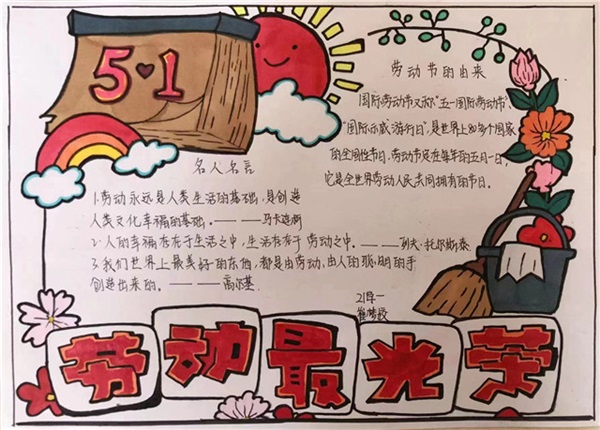 5♥1
劳动节的由来
国际劳动节又称“五一国际劳动节”、
“国际示威游行日”,是世界上80多个国家
的全国性节日。劳动节定在每年的五月一日,
它是全世界劳动人民共同拥有的节日。
名人名言
1.劳动永远是人类生活的基础,是创造
人类文化幸福的基础。———马卡连柯
2.人的幸福存在于生活之中,生活存在于劳动之中。——列夫·托尔斯泰
3.我们世界上最美好的东西,都是由劳动、由人的聪明的手
创造出来的。———高尔基
劳动最光荣